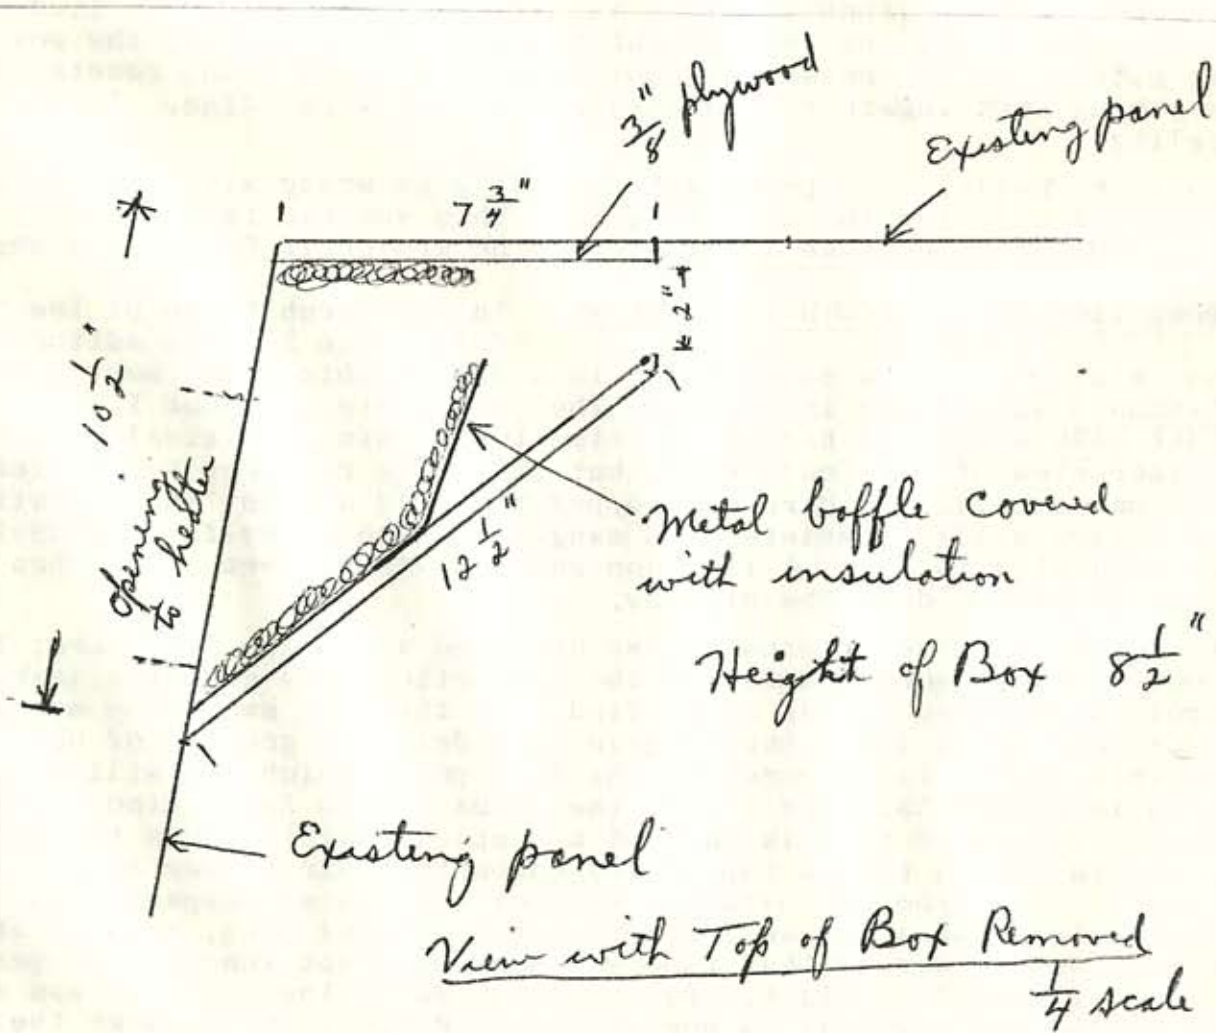 3/8" plywood
Existing panel
7 3/4"
2"
10 1/2"
Opening
to heater
12 1/2"
Metal baffle covered
with insulation
Height of Box 8 1/2"
Existing panel
View with Top of Box Removed
1/4 scale